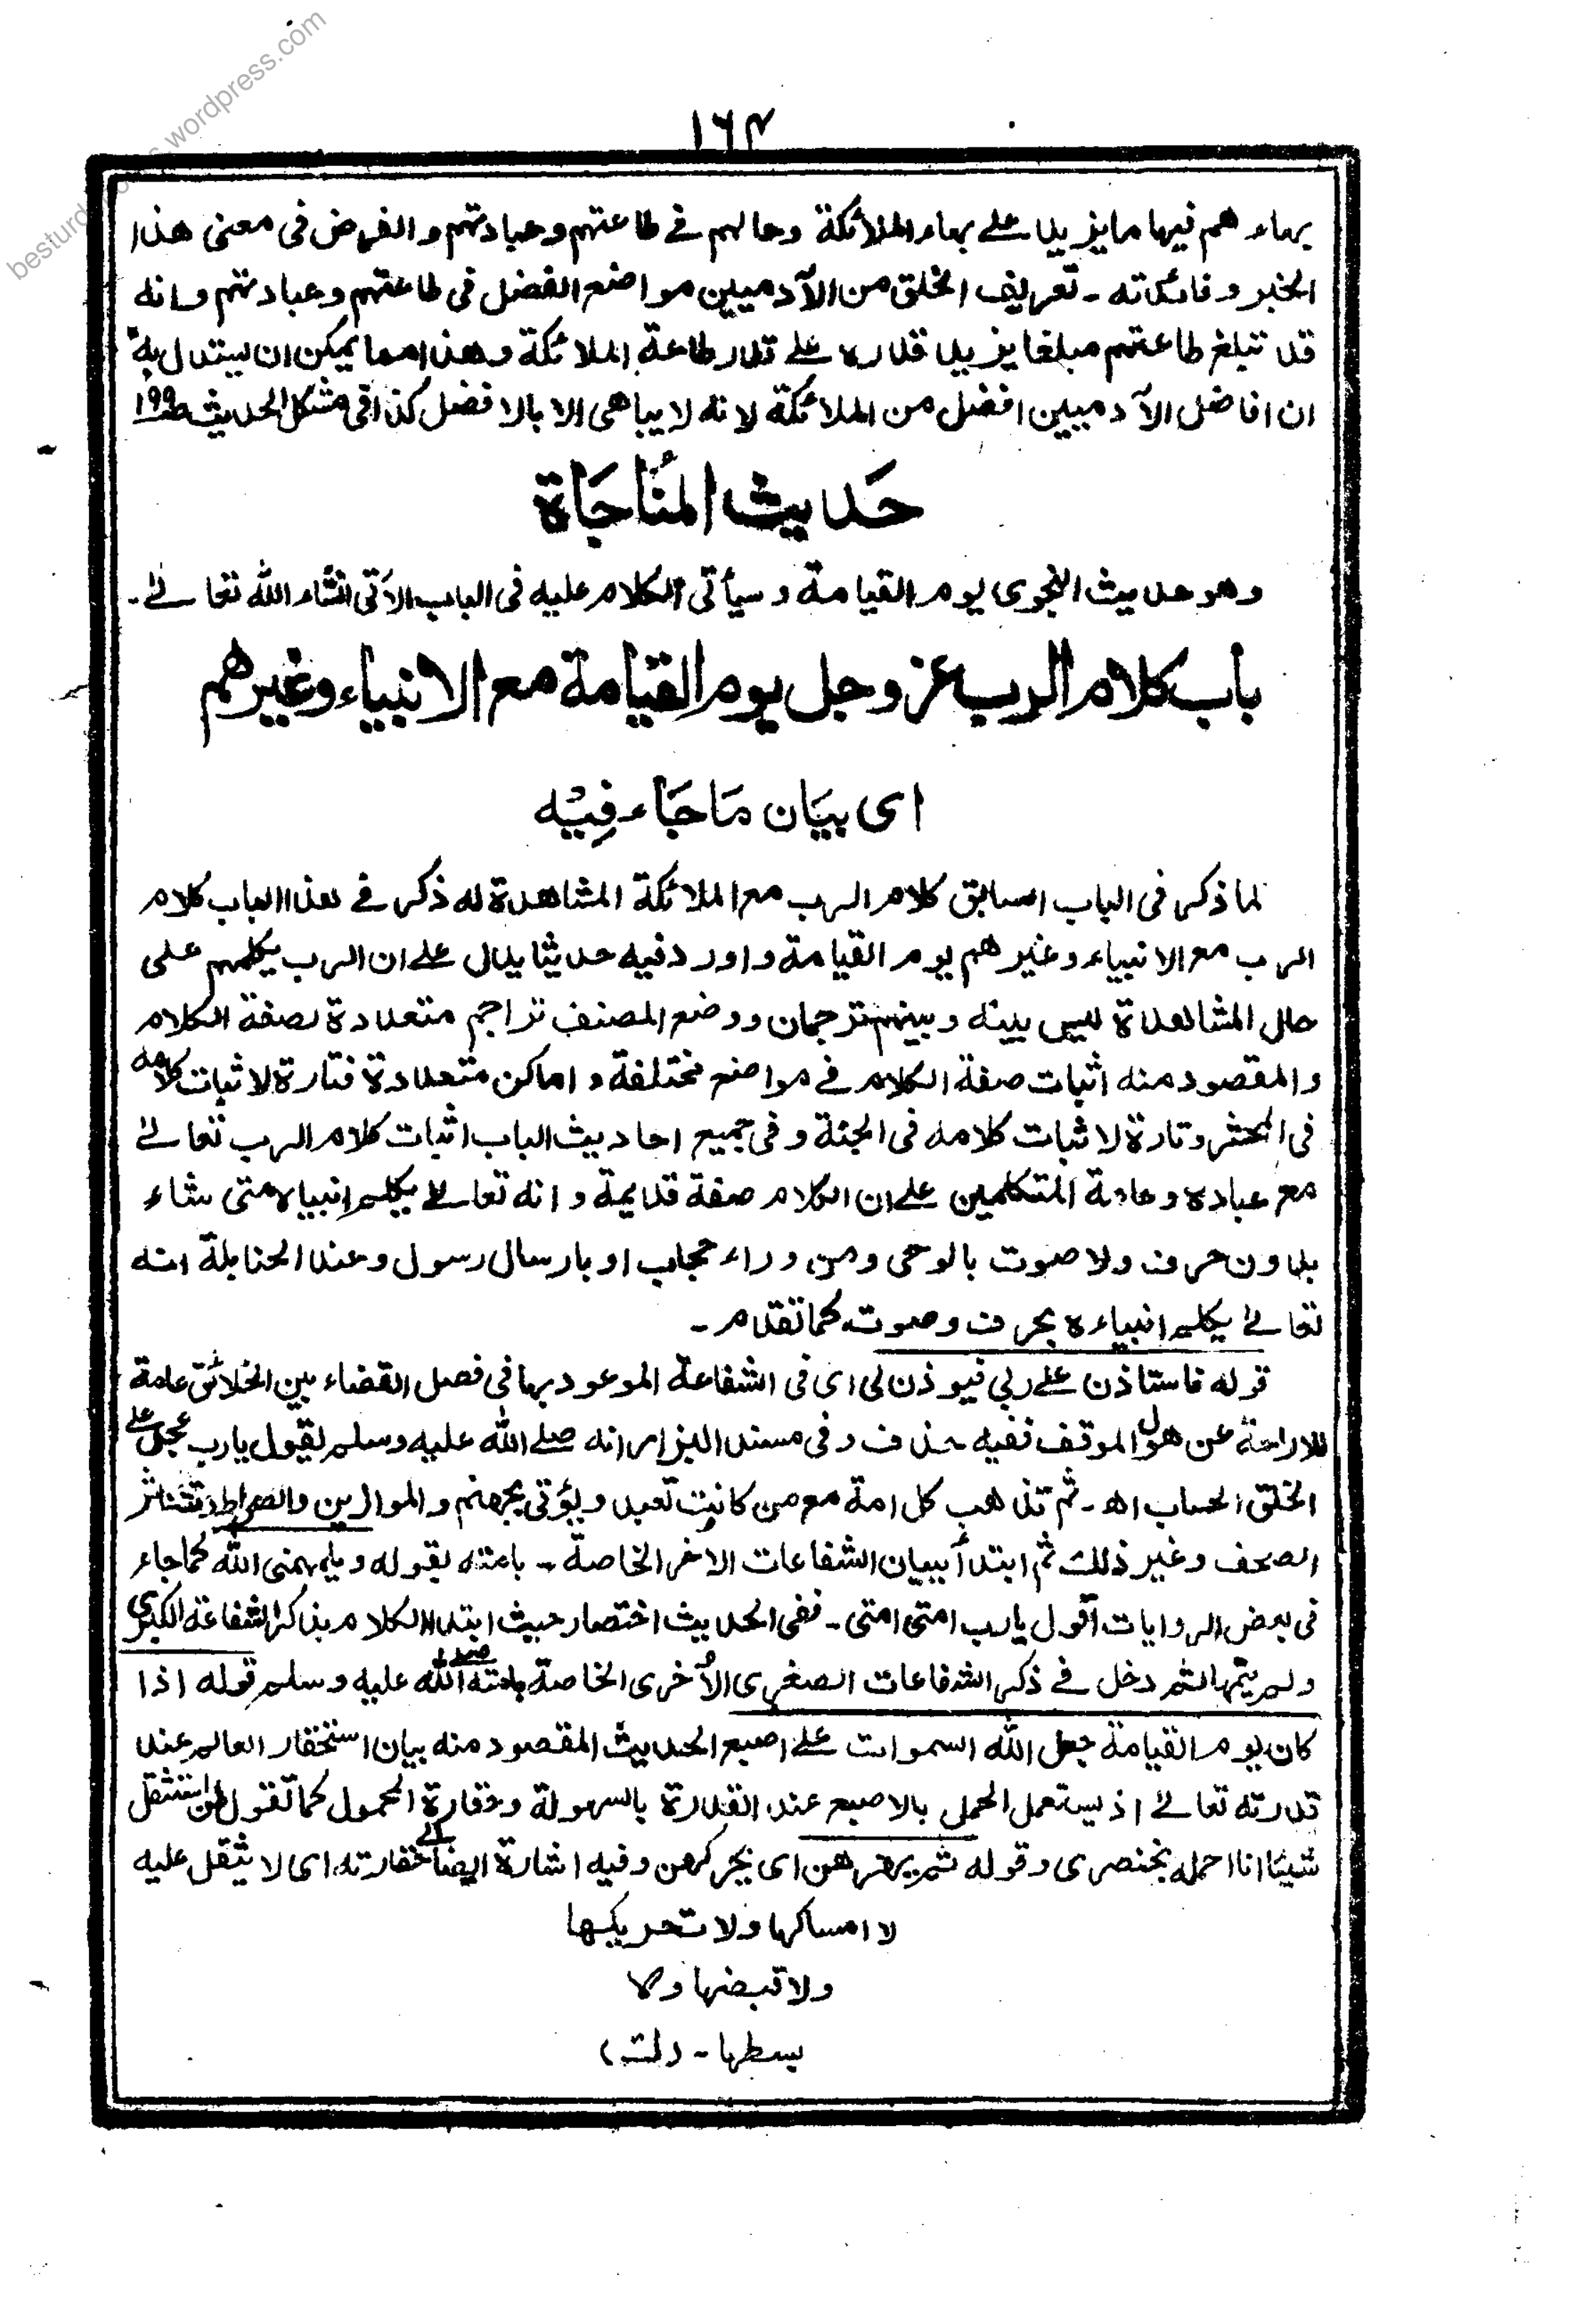 besturdubooks.wordpress.com
۱۶۴
بهاء هم فيها ما يزيد على بهاء الملائكة وحالهم في طاعتهم وعبادتهم والغرض في معنى هذا
الخبر وفائدته ـ تعريف الخلق من الآدميين مواضع الفضل في طاعتهم وعبادتهم وانه
قد تبلغ طاعتهم مبلغا يزيد قدره على قدر طاعة الملائكة وهذا مما يمكن ان يستدل به
ان افاضل الآدميين افضل من الملائكة لانه لا يباهى الا بالافضل كذا في مشكل الحديث ص۱۹۹
حَديث المُناجَاة
وهو حديث النجوى يوم القيامة وسيأتى الكلام عليه فى الباب الآتى انشاء الله تعالى ـ
باب كلام الرب عز وجل يوم القيامة مع الانبياء وغيرهم
اى بيَان مَا جَاء فِيْه
لما ذكر فى الباب السابق كلام الرب مع الملائكة المشاهدة له ذكر فى هذا الباب كلام
الرب مع الانبياء وغيرهم يوم القيامة واورد فيه حديثا يدل على ان الرب يكلمهم على
حال المشاهدة ليس بينه وبينهم ترجمان ووضع المصنف تراجم متعددة لصفة الكلام
والمقصود منه اثبات صفة الكلام فى مواضع مختلفة واماكن متعددة فتارة لاثبات كلامه
فى المحشر وتارة لاثبات كلامه فى الجنة وفى جميع احاديث الباب اثبات كلام الرب تعالى
مع عباده وعامة المتكلمين على ان الكلام صفة قديمة وانه تعالى يكلم انبياءه متى شاء
بدون حرف ولا صوت بالوحى ومن وراء حجاب او بارسال رسول وعند الحنابلة انه
تعالى يكلم انبياءه بحرف وصوت كما تقدم ـ
قوله فاستاذن على ربي فيوذن لى اى فى الشفاعة الموعود بها فى فصل القضاء بين الخلائق عامة
للاراحة عن هول الموقف ففيه حذف وفى مسند البزار انه صلى الله عليه وسلم يقول يارب عجل على
الخلق الحساب اھ ـ ثم تذهب كل امة مع من كانت تعبد ويؤتى بجهنم والموازين والصراط وتتناثر
الصحف وغير ذلك ثم ابتدأ ببيان الشفاعات الاخر الخاصة ـ بامته بقوله ويلهمنى الله كما جاء
فى بعض الروايات أقول يارب امتى امتى ـ ففى الحديث اختصار حيث ابتدا الكلام بذكر الشفاعة الكبرى
ولم يتمها ثم دخل فى ذكر الشفاعات الصغرى الأخرى الخاصة بامته صلى الله عليه وسلم قوله اذا
كان يوم القيامة جعل الله السموات على اصبع الحديث المقصود منه بيان استحقار العالم عند
قدرته تعالى اذ يستعمل الحمل بالاصبع عند القدرة بالسهولة وحقارة المحمول كما تقول لمن استثقل
شيئا انا احمله بخنصرى وقوله ثم يهزهن اى يحركهن وفيه اشارة ايضا الى حقارته اى لا يثقل عليه
لا امساكها ولا تحريكها
ولا قبضها ولا
بسطها ـ